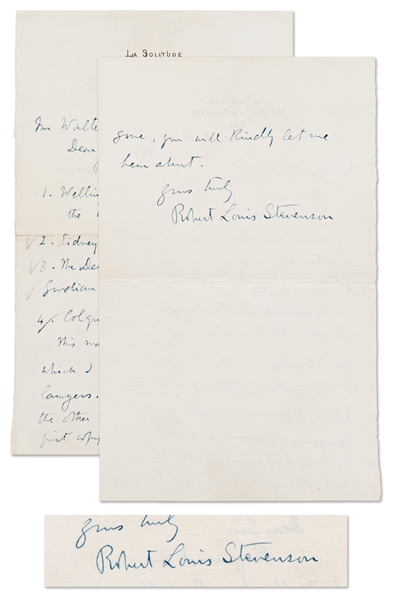 LA SOLITUDE
Mr Walte
Dear
1. Welling
the
2. Sidney
3. The De
4. Colqu
This
which I
lawyers.
the other
first copy
gone, you will kindly let me
hear about.
yours truly
Robert Louis Stevenson
yours truly
Robert Louis Stevenson